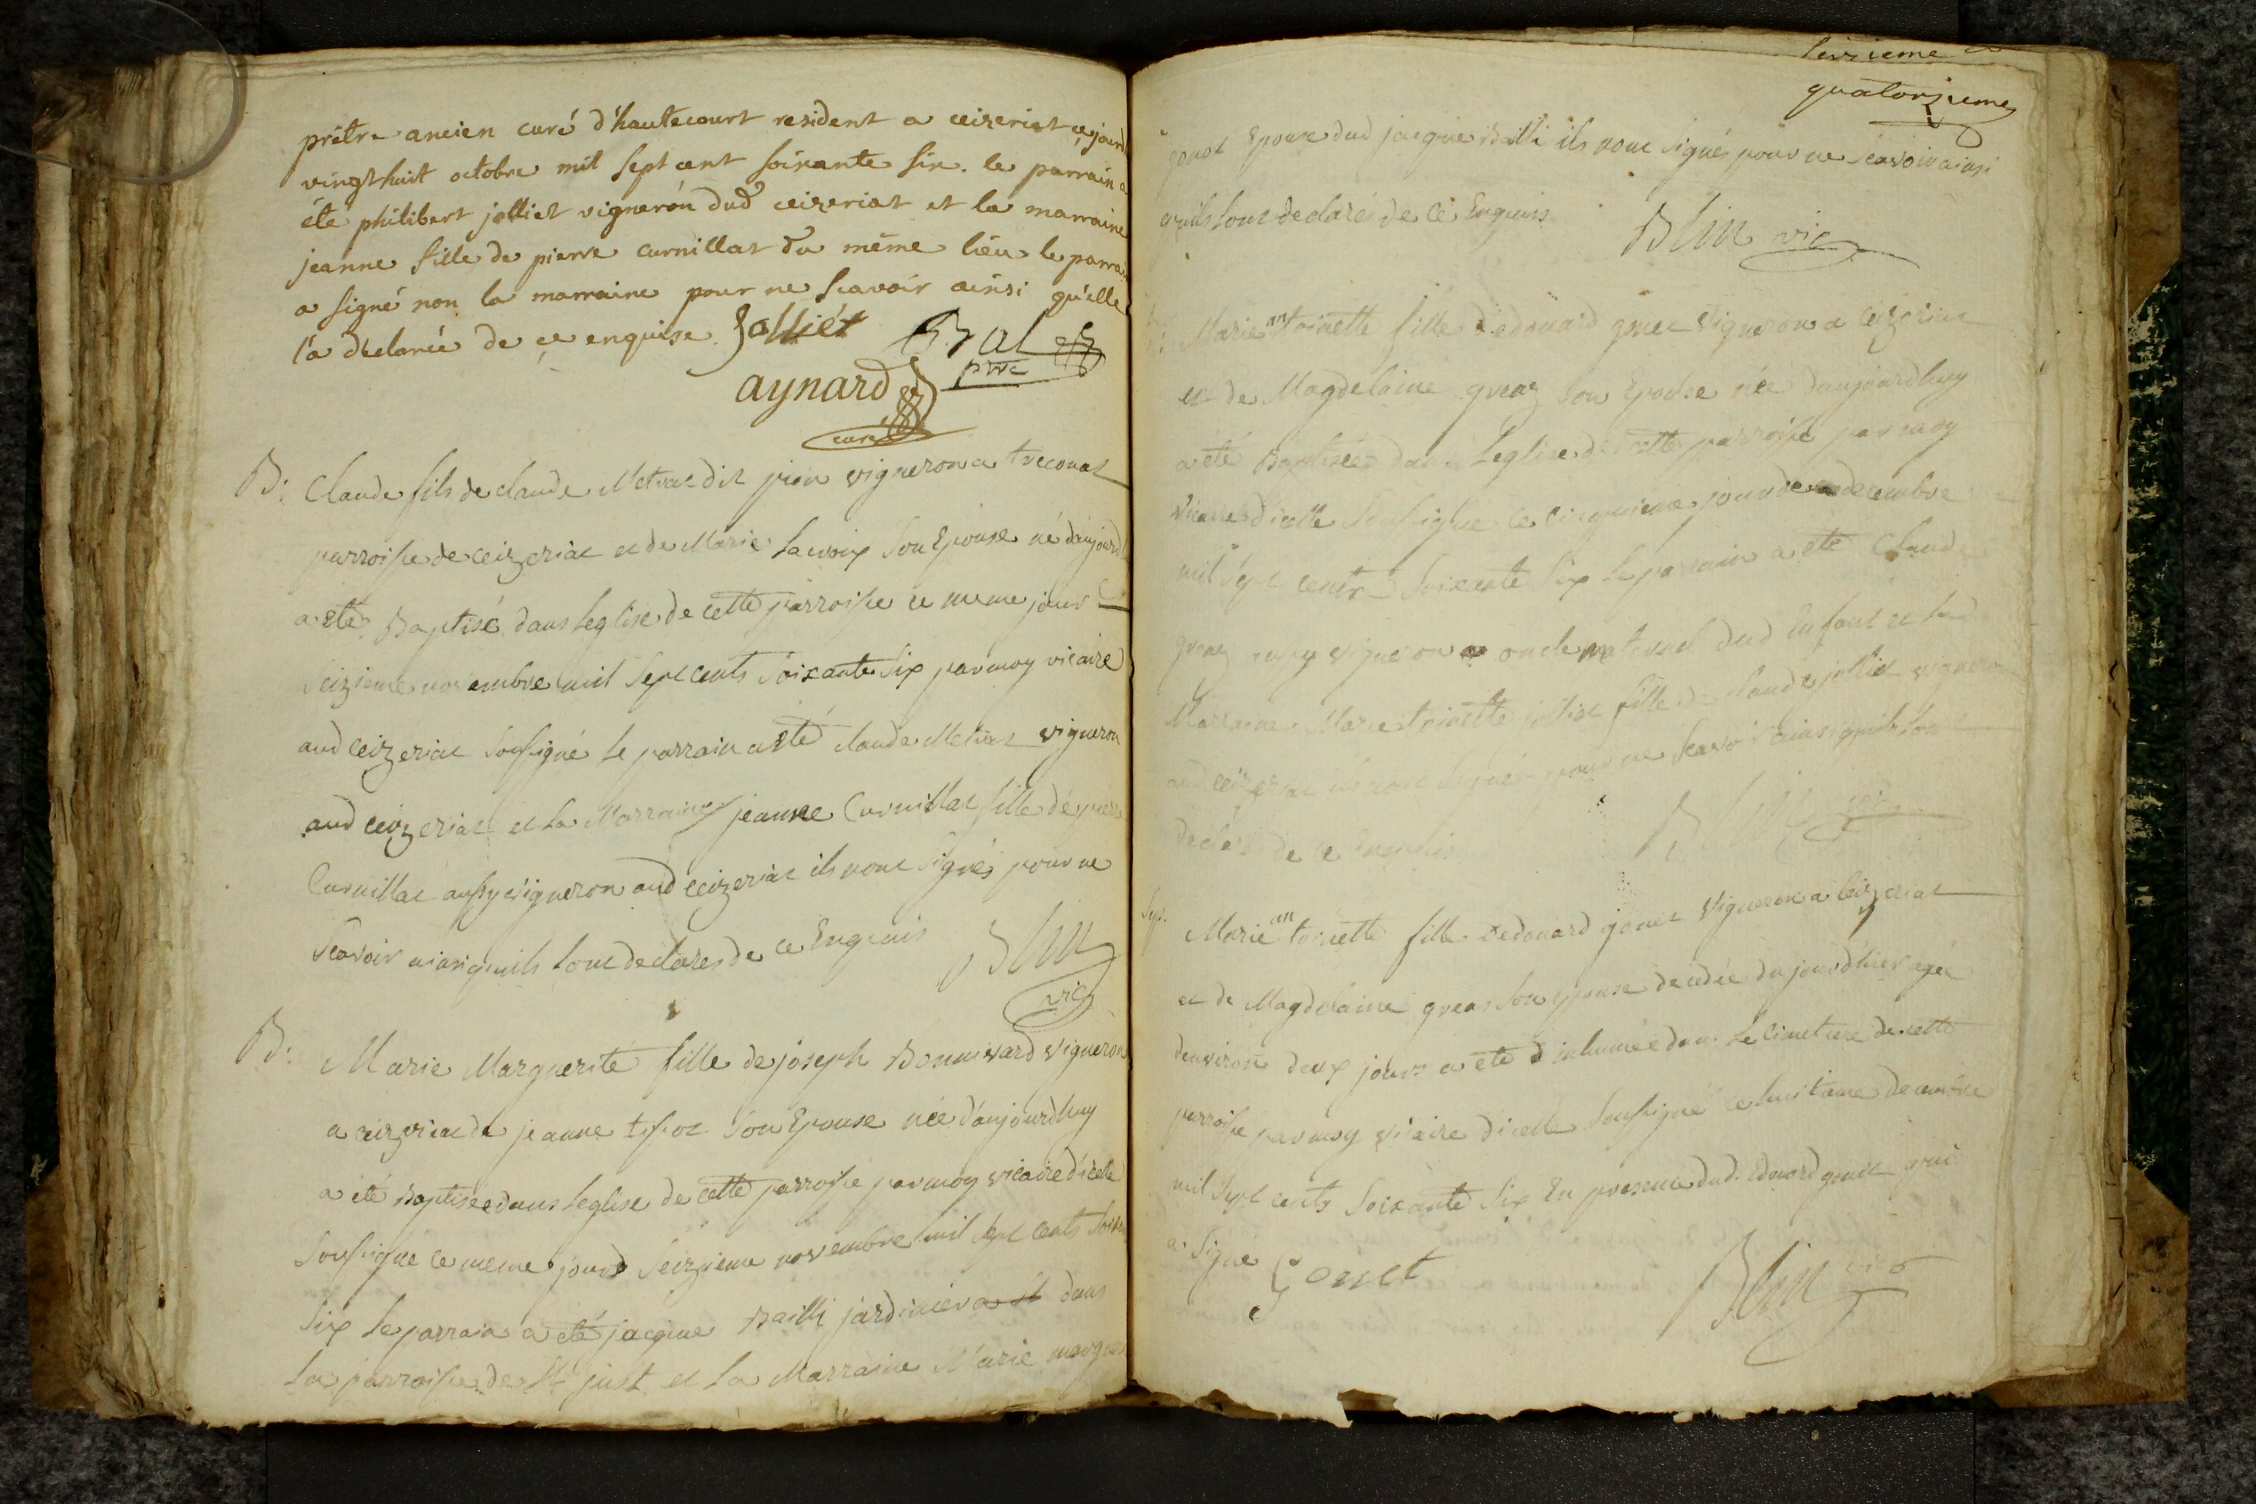 prêtre ancien curé d'hautecourt resident a ceizeriat ce jourd
vingt huit octobre mil sept cent soixante six. le parrain a
été philibert jolliet vigneron dud ceizeriat et la marraine
jeanne fille de pierre curnillat du même lieu le parra
a signé non la marraine pour ne scavoir ainsi qu'elle
l'a déclarée de ce enquise. Jolliet Bral
ptre
aynard
curé
B: Claude fils de claude Metrat dit pion vigneron a treconat
parroisse de ceizeriat et de Marie Lacroix Son Epouse né daujourd
a eté Baptisé dans Leglise de cette parroisse ce meme jour
seizieme novembre mil Sept cents Soixante Six par moy vicaire
aud Ceizeriat Soussigné Le parrain a eté claude Metrat vigneron
aud ceizeriat et La Marraine jeanne Curnillat fille de pierre
Curnillat aussy vigneron aud ceizeriat ils nont Signés pour ne
Scavoir ainsi quils Lont declarés de ce Enquis Blin
vic
B: Marie Marguerite fille de joseph Bonnivard vigneron
a ceizeriat de jeanne Son Epouse née daujourdhuy
a été Baptisée dans Leglise de cette parroisse par moy vicaire dicelle
Soussigné ce meme jour Seizieme novembre mil Sept cents Soix
Six Le parrain a été jacque Bailli jardinier dans
La parroisse de St just et La Marraine Marie margue
Seizieme
quatorzieme
gonot Epouse dud jacque Bailli ils nont signés pour ne scavoir ainsi
quils Lont declarés de ce Enquis Blin vic
Marie antoinette fille dedouard gonet Vigneron a Ceizeriat
et de Magdelaine greaz Son Epouse née daujourdhuy
a été Baptisée dans Leglise de cette parroisse par moy
Vicaire dicelle Soussigné ce cinquieme jour de decembre
mil Sept cents Soixante Six Le parrain a eté Claude
greaz aussy vigneron oncle maternel dud Enfant et La
Marraine Marie toinette jolliet fille de claude jolliet vigneron
aud ceizeriat ils nont Signés pour ne Scavoir ainsi quils Lont
declaré de ce Enquis Blin vic
Sep. Marie antoinette fille dedouard gonet Vigneron a Ceizeriat
et de Magdelaine greas Son epouse decedée du jour dhier agée
denviron deux jours a eté inhumée dans Le Cimetiere de cette
parroisse par moy Vicaire dicelle Soussigné ce huitieme decembre
mil Sept cents Soixante Six En presence dud. edouard gonet qui
a Signé Gonet Blin vic